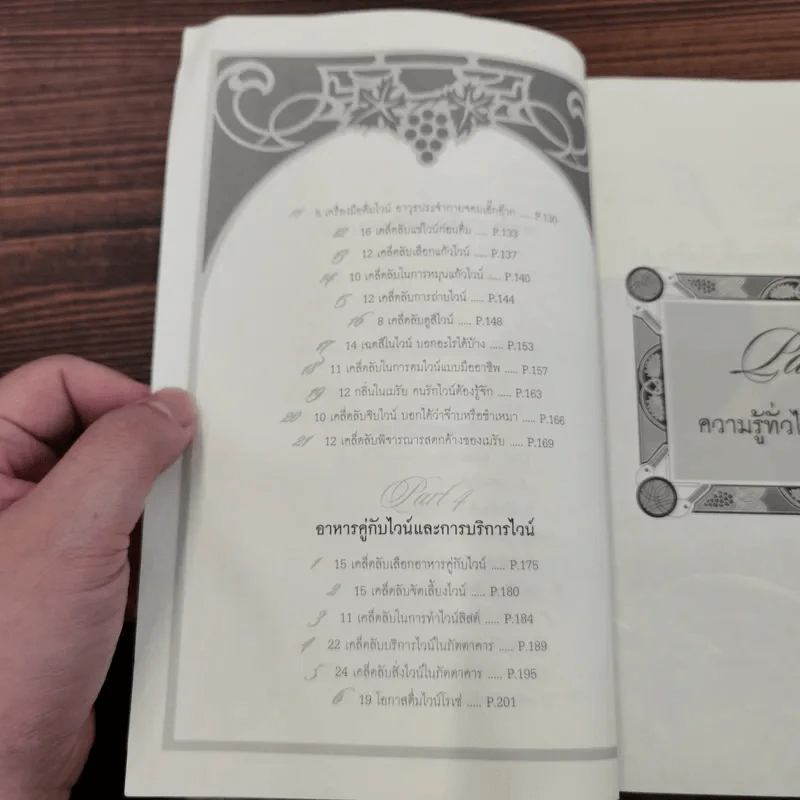 11 8 เครื่องมือดื่มไวน์ อาวุธประจำกายจอมเอ็กอ๊าก .... P.130
12 16 เคล็ดลับแช่ไวน์ก่อนดื่ม ..... P.133
13 12 เคล็ดลับเลือกแก้วไวน์ ..... P.137
14 10 เคล็ดลับในการหมุนแก้วไวน์ ..... P.140
15 12 เคล็ดลับการถ่ายไวน์ ..... P.144
16 8 เคล็ดลับดูสีไวน์ ..... P.148
17 14 เฉดสีในไวน์ บอกอะไรได้บ้าง ..... P.153
18 11 เคล็ดลับในการดมไวน์แบบมืออาชีพ ..... P.157
19 12 กลิ่นในเมรัย คนรักไวน์ต้องรู้จัก ..... P.163
20 10 เคล็ดลับชิมไวน์ บอกได้ว่าจิบหรือขี้เหมา ..... P.166
21 12 เคล็ดลับพิจารณารสตกค้างของเมรัย ..... P.169
Part 4
อาหารคู่กับไวน์และการบริการไวน์
1 15 เคล็ดลับเลือกอาหารคู่กับไวน์ ..... P.175
2 15 เคล็ดลับจัดเลี้ยงไวน์ ..... P.180
3 11 เคล็ดลับในการทำไวน์ลิสต์ ..... P.184
4 22 เคล็ดลับบริการไวน์ในภัตตาคาร ..... P.189
5 24 เคล็ดลับสั่งไวน์ในภัตตาคาร ..... P.195
6 19 โอกาสดื่มไวน์โรเซ่ ..... P.201
Pa
ความรู้ทั่วไ